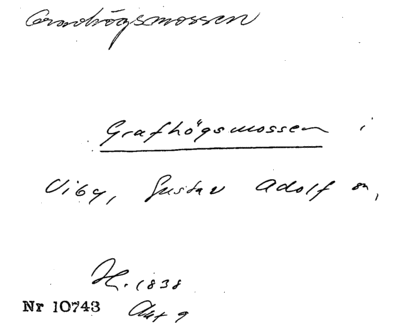 Gravhögsmossen
Grafhögsmossen i
Viby, Gustav Adolf sn,
H. 1838
Nr 10743 Akt 9